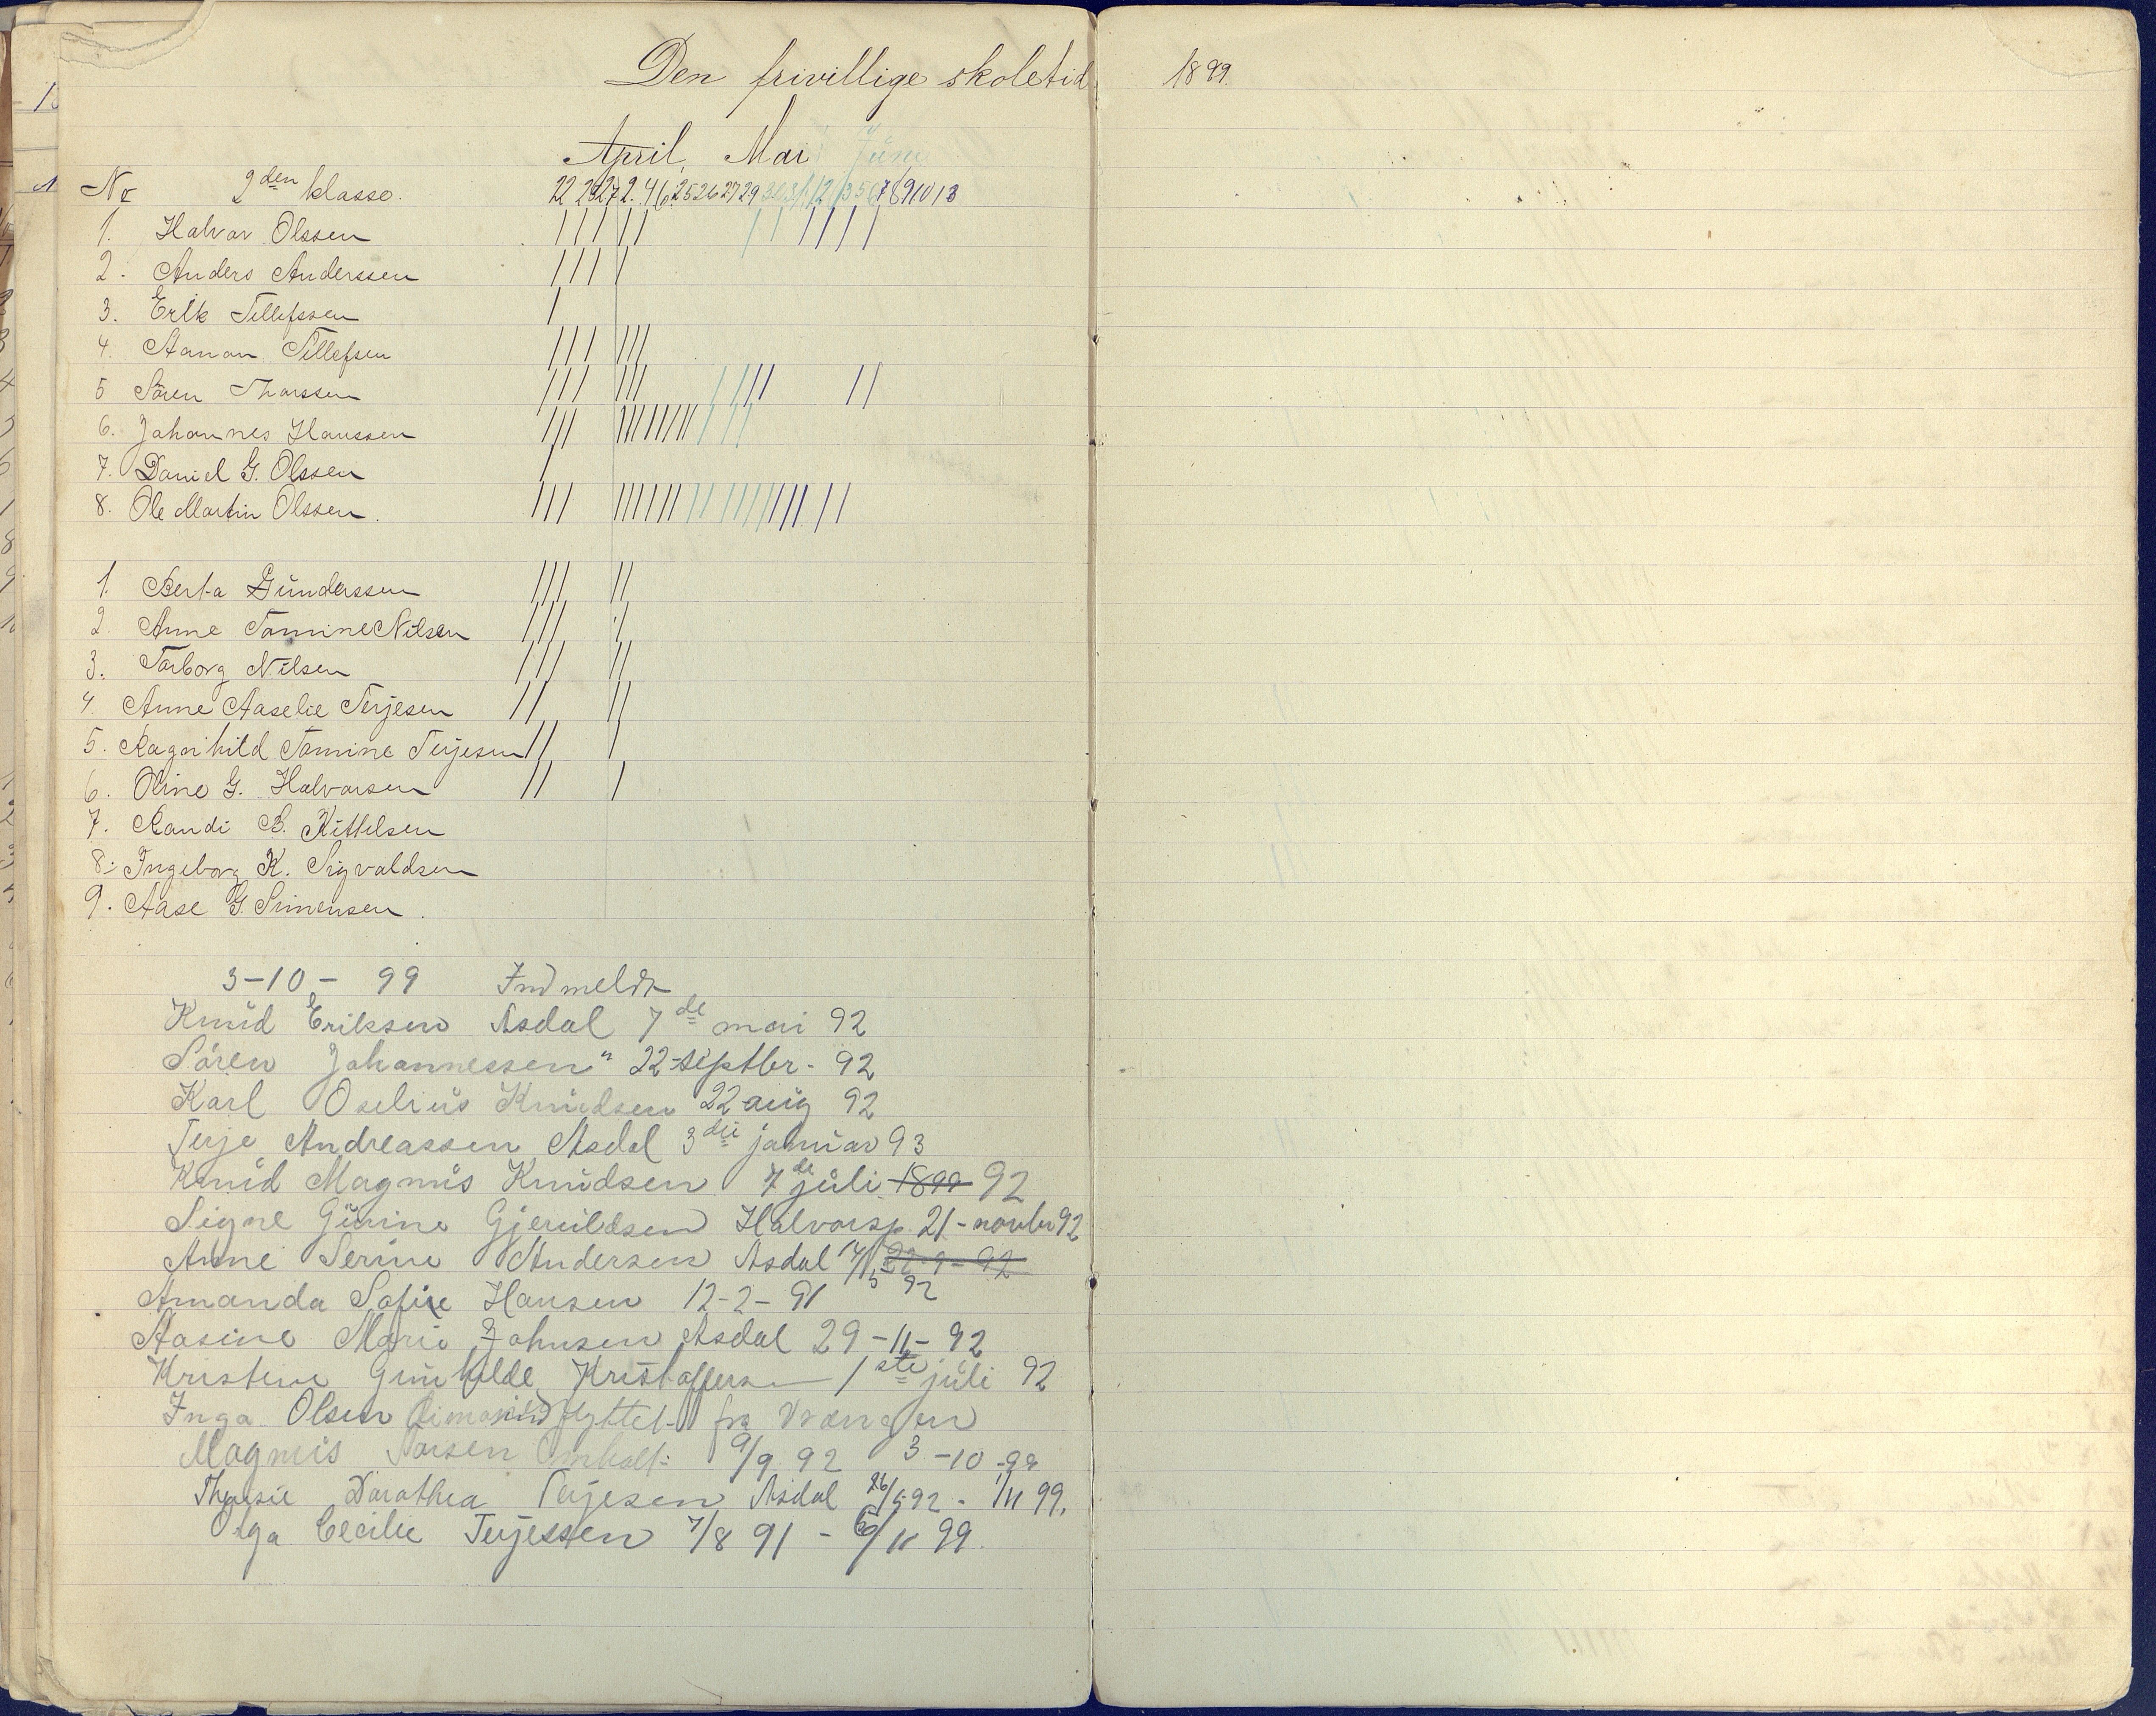 Den frivillige skoletid 1899.
April, Mai Juni
No 2den klasse. 22 26 27 2. 4 6. 25 26 27 29 30 31 1 2 3 5 6 7 8 9 10 13
1. Halvor Olssen
2. Anders Anderssen
3. Erik Tellefssen
4. Aanon Tellefsen
5 Sören Thorssen
6. Johannes Hanssen
7. Daniel G. Olssen
8. Ole Martin Olssen.
1. Berta Gunderssen
2. Anne Tomine Nilsen
3. Torborg Nilsen
4. Anne Aaselie Terjesen
5. Ragnhild Tomine Terjesen
6. Oline G. Halvorsen
7. Randi B. Kittelsen
8. Ingeborg K. Sigvaldsen
9. Aase G. Simensen.
3-10-99 Indmeldt
Knud Eriksen Asdal 7de mai 92
Sören Johannessen " 22-septbr-92
Karl Oselius Knudsen 22 aug 92
Terje Andreassen Asdal 3die januar 93
Knud Magnus Knudsen 7de juli 1899 92
Signe Gurine Gjeruldsen Halvorsp. 21-novbr 92
Anne Serine Andersen Asdal 14/5 92
Amanda Sofie Hansen 12-2-91
Aasine Marie Johnsen Asdal 29-11-92
Kristine Gunhilde Kristoffersen 1ste juli 92
Inga Olsen flyttet fra Vrængen
Magnus Larsen Omholt 9/9 92 3-10-99
Theresie Dorothea Terjesen Asdal 26/5 92 - 1/11 99.
Olga Cecilie Terjessen 7/8 91 - 6/11 99.